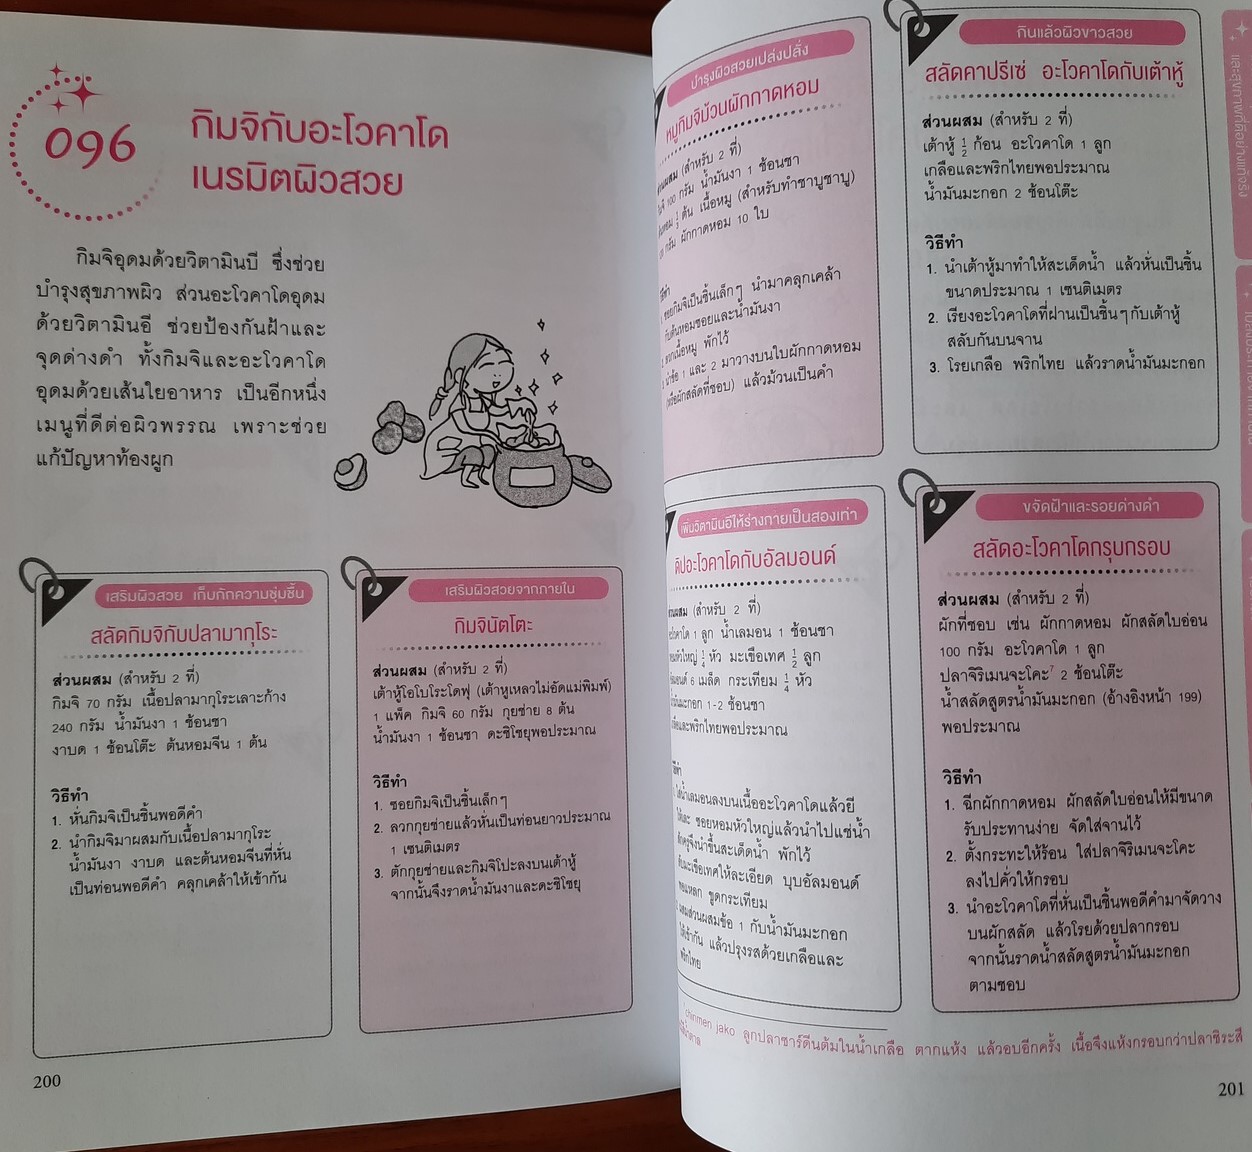 096
กิมจิกับอะโวคาโด
เนรมิตผิวสวย
กิมจิอุดมด้วยวิตามินบี ซึ่งช่วย
บำรุงสุขภาพผิว ส่วนอะโวคาโดอุดม
ด้วยวิตามินอี ช่วยป้องกันฝ้าและ
จุดด่างดำ ทั้งกิมจิและอะโวคาโด
อุดมด้วยเส้นใยอาหาร เป็นอีกหนึ่ง
เมนูที่ดีต่อผิวพรรณ เพราะช่วย
แก้ปัญหาท้องผูก
เสริมผิวสวย เก็บกักความชุ่มชื้น
สลัดกิมจิกับปลามากุโระ
ส่วนผสม (สำหรับ 2 ที่)
กิมจิ 70 กรัม เนื้อปลามากุโระเลาะก้าง
240 กรัม น้ำมันงา 1 ช้อนชา
งาบด 1 ช้อนโต๊ะ ต้นหอมจีน 1 ต้น
วิธีทำ
1. หั่นกิมจิเป็นชิ้นพอดีคำ
2. นำกิมจิมาผสมกับเนื้อปลามากุโระ
น้ำมันงา งาบด และต้นหอมจีนที่หั่น
เป็นท่อนพอดีคำ คลุกเคล้าให้เข้ากัน
เสริมผิวสวยจากภายใน
กิมจินัตโตะ
ส่วนผสม (สำหรับ 2 ที่)
เต้าหู้โอโบโระโดฟุ (เต้าหู้เหลวไม่อัดแม่พิมพ์)
1 แพ็ค กิมจิ 60 กรัม กุยช่าย 8 ต้น
น้ำมันงา 1 ช้อนชา ดะชิโชยุพอประมาณ
วิธีทำ
1. ซอยกิมจิเป็นชิ้นเล็กๆ
2. ลวกกุยช่ายแล้วหั่นเป็นท่อนยาวประมาณ
1 เซนติเมตร
3. ตักกุยช่ายและกิมจิโปะลงบนเต้าหู้
จากนั้นจึงราดน้ำมันงาและดะชิโชยุ
200
บำรุงผิวสวยเปล่งปลั่ง
หมูกิมจิม้วนผักกาดหอม
(สำหรับ 2 ที่)
100 กรัม น้ำมันงา 1 ช้อนชา
½ ต้น เนื้อหมู (สำหรับทำชาบูชาบู)
กรัม ผักกาดหอม 10 ใบ
ซอยกิมจิเป็นชิ้นเล็กๆ นำมาคลุกเคล้า
กับต้นหอมซอยและน้ำมันงา
ลวกเนื้อหมู พักไว้
นำข้อ 1 และ 2 มาวางบนใบผักกาดหอม
(หรือผักสลัดที่ชอบ) แล้วม้วนเป็นคำ
กินแล้วผิวขาวสวย
สลัดคาปรีเซ่ อะโวคาโดกับเต้าหู้
ส่วนผสม (สำหรับ 2 ที่)
เต้าหู้ ½ ก้อน อะโวคาโด 1 ลูก
เกลือและพริกไทยพอประมาณ
น้ำมันมะกอก 2 ช้อนโต๊ะ
วิธีทำ
1. นำเต้าหู้มาทำให้สะเด็ดน้ำ แล้วหั่นเป็นชิ้น
ขนาดประมาณ 1 เซนติเมตร
2. เรียงอะโวคาโดที่ฝานเป็นชิ้นๆกับเต้าหู้
สลับกันบนจาน
3. โรยเกลือ พริกไทย แล้วราดน้ำมันมะกอก
เพิ่มวิตามินอีให้ร่างกายเป็นสองเท่า
ดิปอะโวคาโดกับอัลมอนด์
(สำหรับ 2 ที่)
1 ลูก น้ำเลมอน 1 ช้อนชา
¼ หัว มะเขือเทศ ½ ลูก
6 เมล็ด กระเทียม ¼ หัว
1-2 ช้อนชา
และพริกไทยพอประมาณ
ใส่น้ำเลมอนลงบนเนื้ออะโวคาโดแล้วยี
ให้เละ ซอยหอมหัวใหญ่แล้วนำไปแช่น้ำ
สักครู่จึงนำขึ้นสะเด็ดน้ำ พักไว้
หั่นมะเขือเทศให้ละเอียด บุบอัลมอนด์
พอแหลก ขูดกระเทียม
ผสมส่วนผสมข้อ 1 กับน้ำมันมะกอก
ให้เข้ากัน แล้วปรุงรสด้วยเกลือและ
พริกไทย
ขจัดฝ้าและรอยด่างดำ
สลัดอะโวคาโดกรุบกรอบ
ส่วนผสม (สำหรับ 2 ที่)
ผักที่ชอบ เช่น ผักกาดหอม ผักสลัดใบอ่อน
100 กรัม อะโวคาโด 1 ลูก
ปลาจิริเมนจะโคะ⁷ 2 ช้อนโต๊ะ
น้ำสลัดสูตรน้ำมันมะกอก (อ้างอิงหน้า 199)
พอประมาณ
วิธีทำ
1. ฉีกผักกาดหอม ผักสลัดใบอ่อนให้มีขนาด
รับประทานง่าย จัดใส่จานไว้
2. ตั้งกระทะให้ร้อน ใส่ปลาจิริเมนจะโคะ
ลงไปคั่วให้กรอบ
3. นำอะโวคาโดที่หั่นเป็นชิ้นพอดีคำมาจัดวาง
บนผักสลัด แล้วโรยด้วยปลากรอบ
จากนั้นราดน้ำสลัดสูตรน้ำมันมะกอก
ตามชอบ
jako ลูกปลาซาร์ดีนต้มในน้ำเกลือ ตากแห้ง แล้วอบอีกครั้ง เนื้อจึงแห้งกรอบกว่าปลาชิระสึ
201